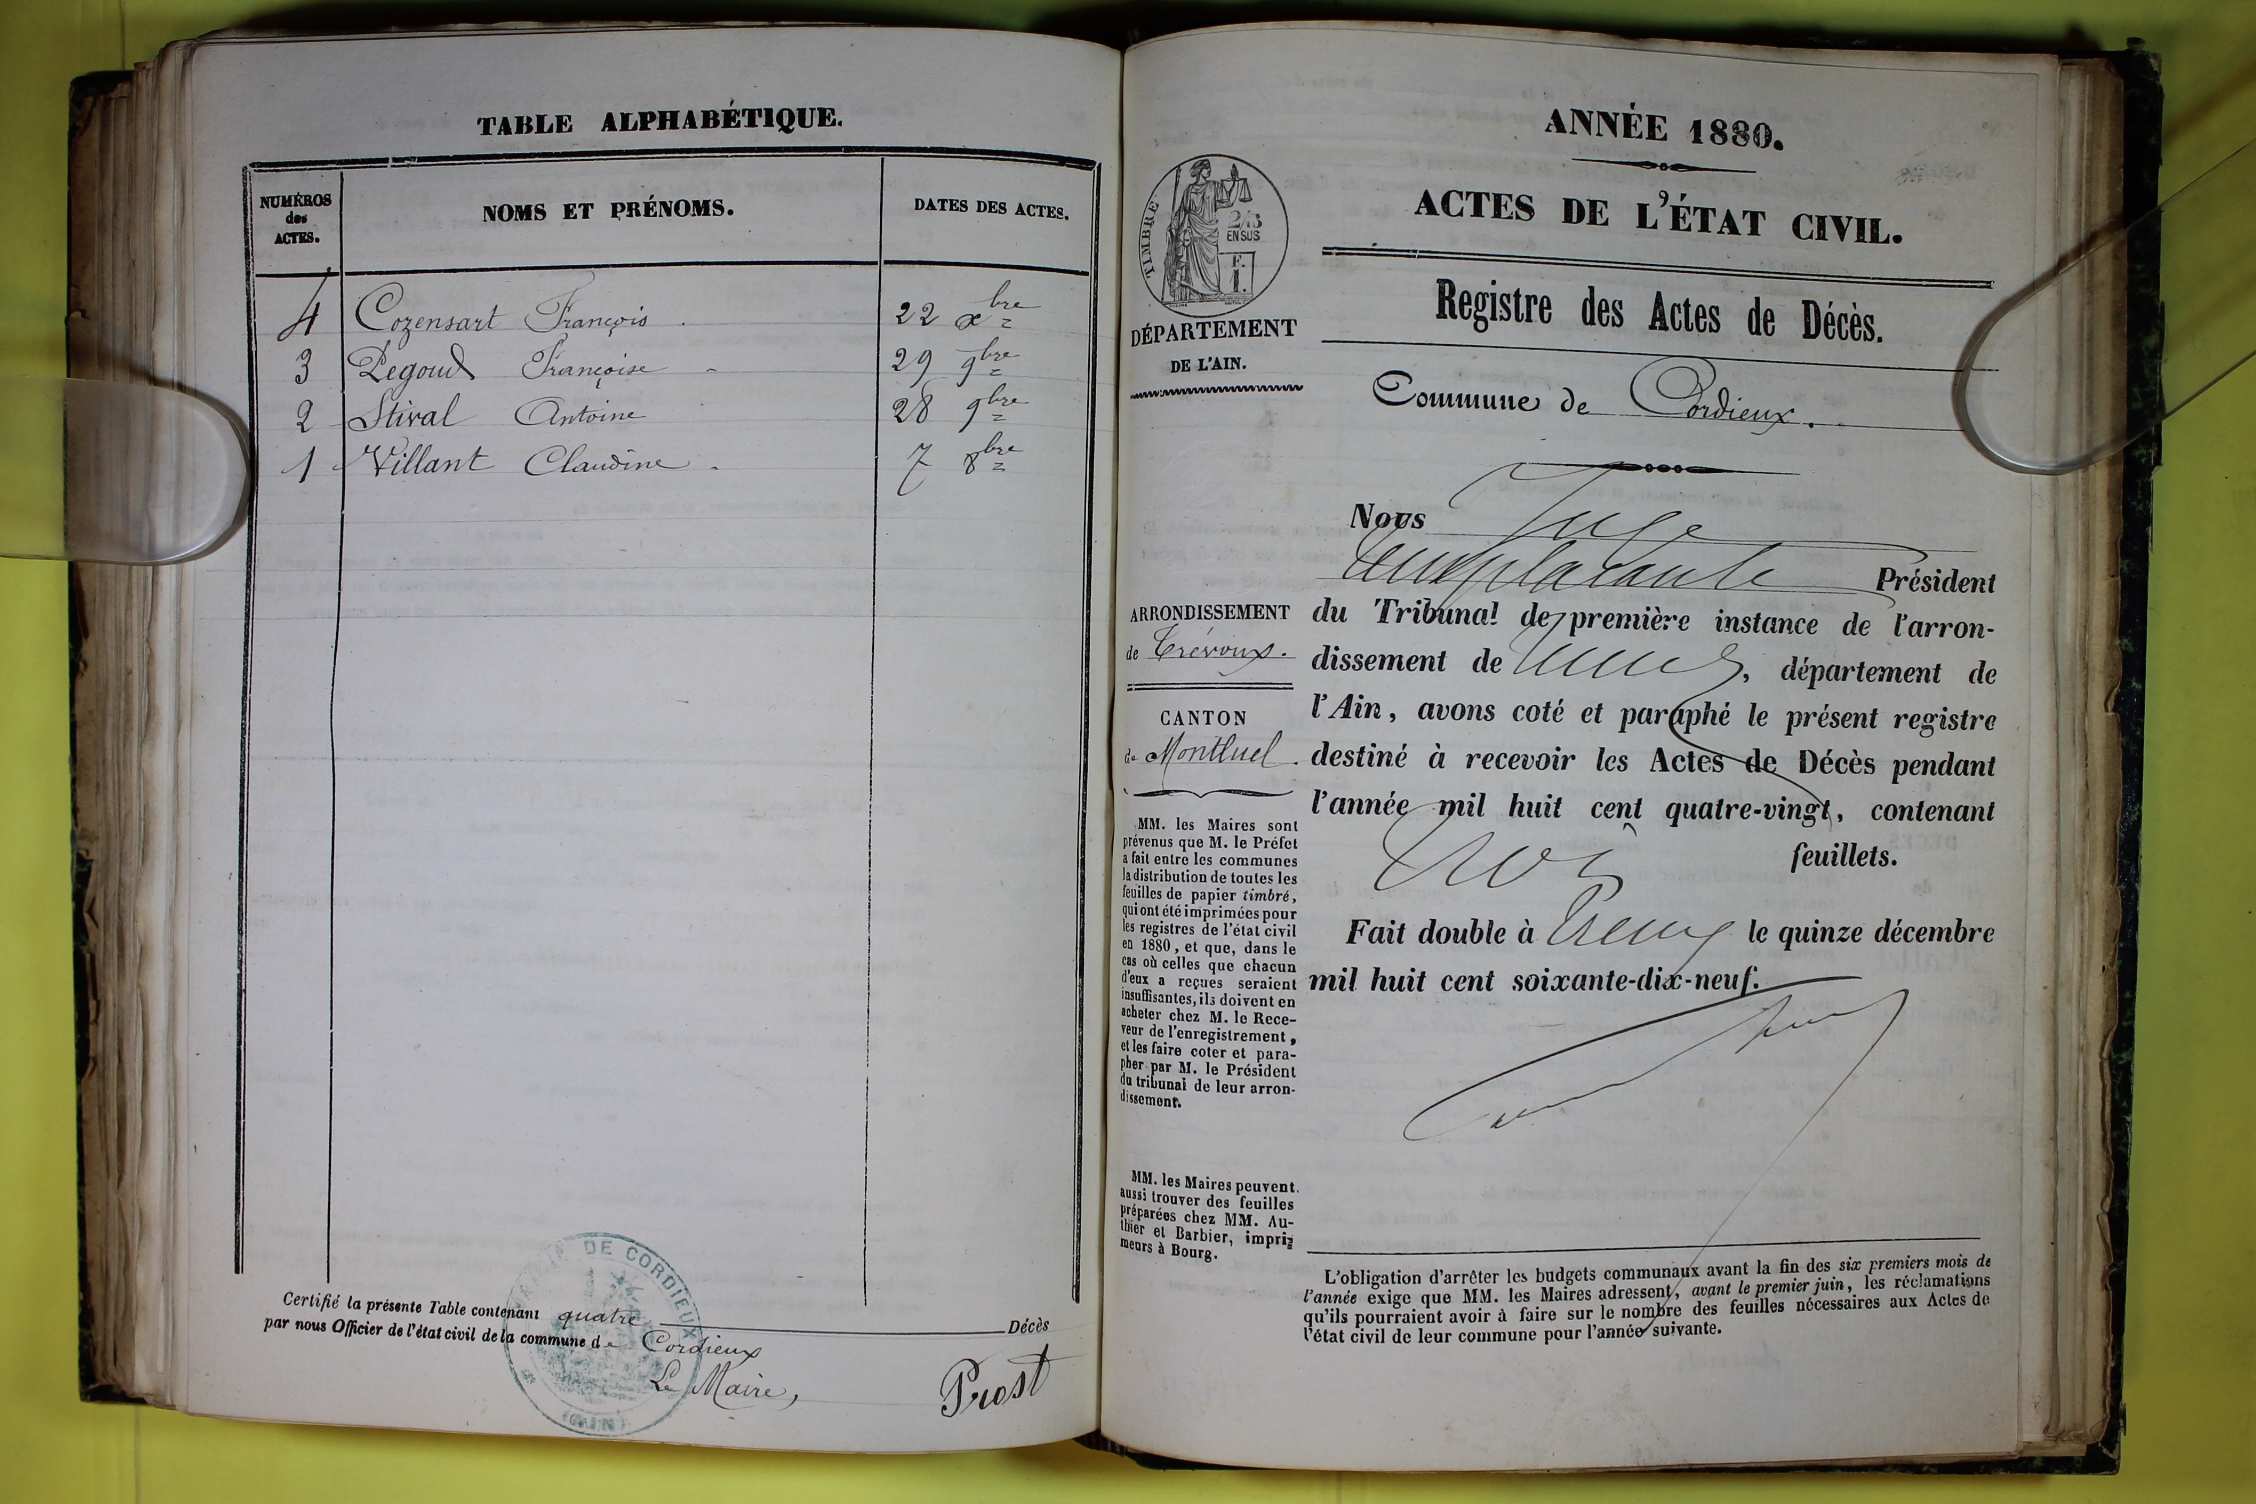 TABLE ALPHABÉTIQUE.
NUMÉROS
des
ACTES.
NOMS ET PRÉNOMS.
DATES DES ACTES.
4 Cozensart François. 22 xbre
3 Pegoud Françoise 29 9bre
2 Stival Antoine 28 9bre
1 Villant Claudine. 7 8bre
Certifié la présente Table contenant quatre Décès
par nous Officier de l'état civil de la commune de Cordieux
Le Maire,
Prost
DE CORDIEUX
(AIN)
ANNÉE 1880.
ACTES DE L'ÉTAT CIVIL.
TIMBRE
2/10
EN SUS
F.
1.
Registre des Actes de Décès.
DÉPARTEMENT
DE L'AIN.
Commune de Cordieux.
Nous Juge
Président
ARRONDISSEMENT
de Trévoux.
CANTON
de Montluel.
du Tribunal de première instance de l'arron-
dissement de , département de
l'Ain, avons coté et paraphé le présent registre
destiné à recevoir les Actes de Décès pendant
l'année mil huit cent quatre-vingt, contenant
trois feuillets.
Fait double à le quinze décembre
mil huit cent soixante-dix-neuf.
MM. les Maires sont
prévenus que M. le Préfet
a fait entre les communes
la distribution de toutes les
feuilles de papier timbré,
qui ont été imprimées pour
les registres de l'état civil
en 1880, et que, dans le
cas où celles que chacun
d'eux a reçues seraient
insuffisantes, ils doivent en
acheter chez M. le Rece-
veur de l'enregistrement,
et les faire coter et para-
pher par M. le Président
du tribunal de leur arron-
dissement.
MM. les Maires peuvent
aussi trouver des feuilles
préparées chez MM. Au-
thier et Barbier, impri-
meurs à Bourg.
L'obligation d'arrêter les budgets communaux avant la fin des six premiers mois de
l'année exige que MM. les Maires adressent, avant le premier juin, les réclamations
qu'ils pourraient avoir à faire sur le nombre des feuilles nécessaires aux Actes de
l'état civil de leur commune pour l'année suivante.